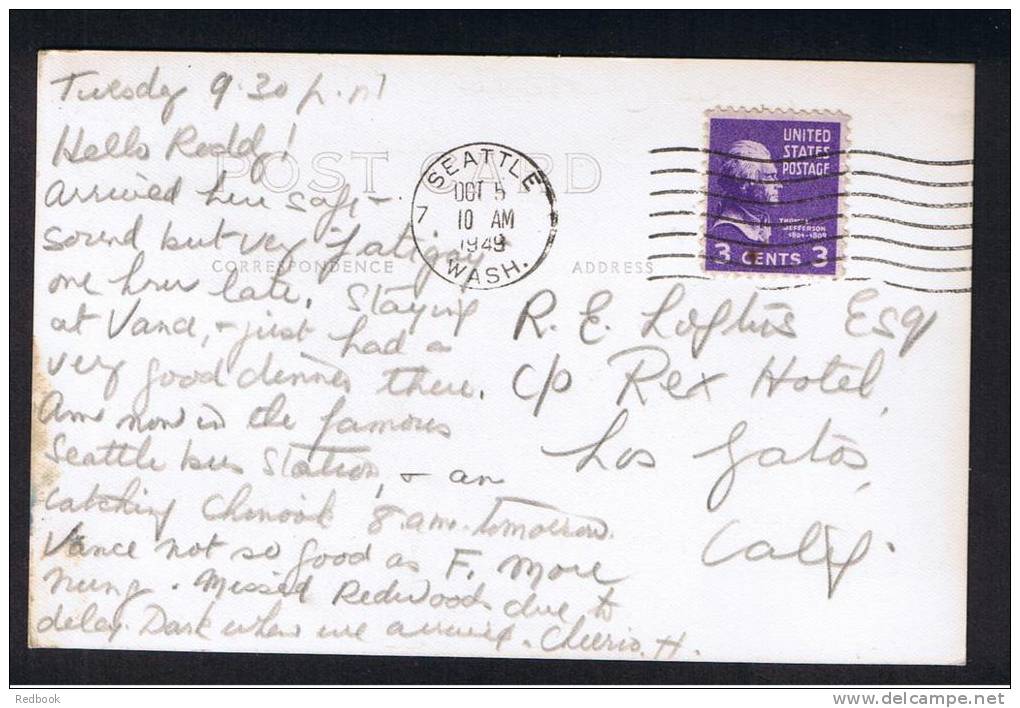 Tuesday 9.30 p.m
Hello Redd!
arrived here safe &
sound but very fatiguy
one hour late. Staying
at Vance, & just had a
very good dinner there.
Am now in the famous
Seattle bus Station, & am
catching Chinook 8 a.m. tomorrow.
Vance not so good as F. More
. Missed Redwoods due to
delay. Dark when we arrived. Cheerio. H.
POST CARD
CORRESPONDENCE
ADDRESS
SEATTLE
OCT 5
7 10 AM
1949
WASH.
UNITED
STATES
POSTAGE
THOMAS
JEFFERSON
1801-1809
3 CENTS 3
R. E. Loftus Esq
c/o Rex Hotel,
Los Gatos,
Calif.
Redbook
http://www.delcampe.net